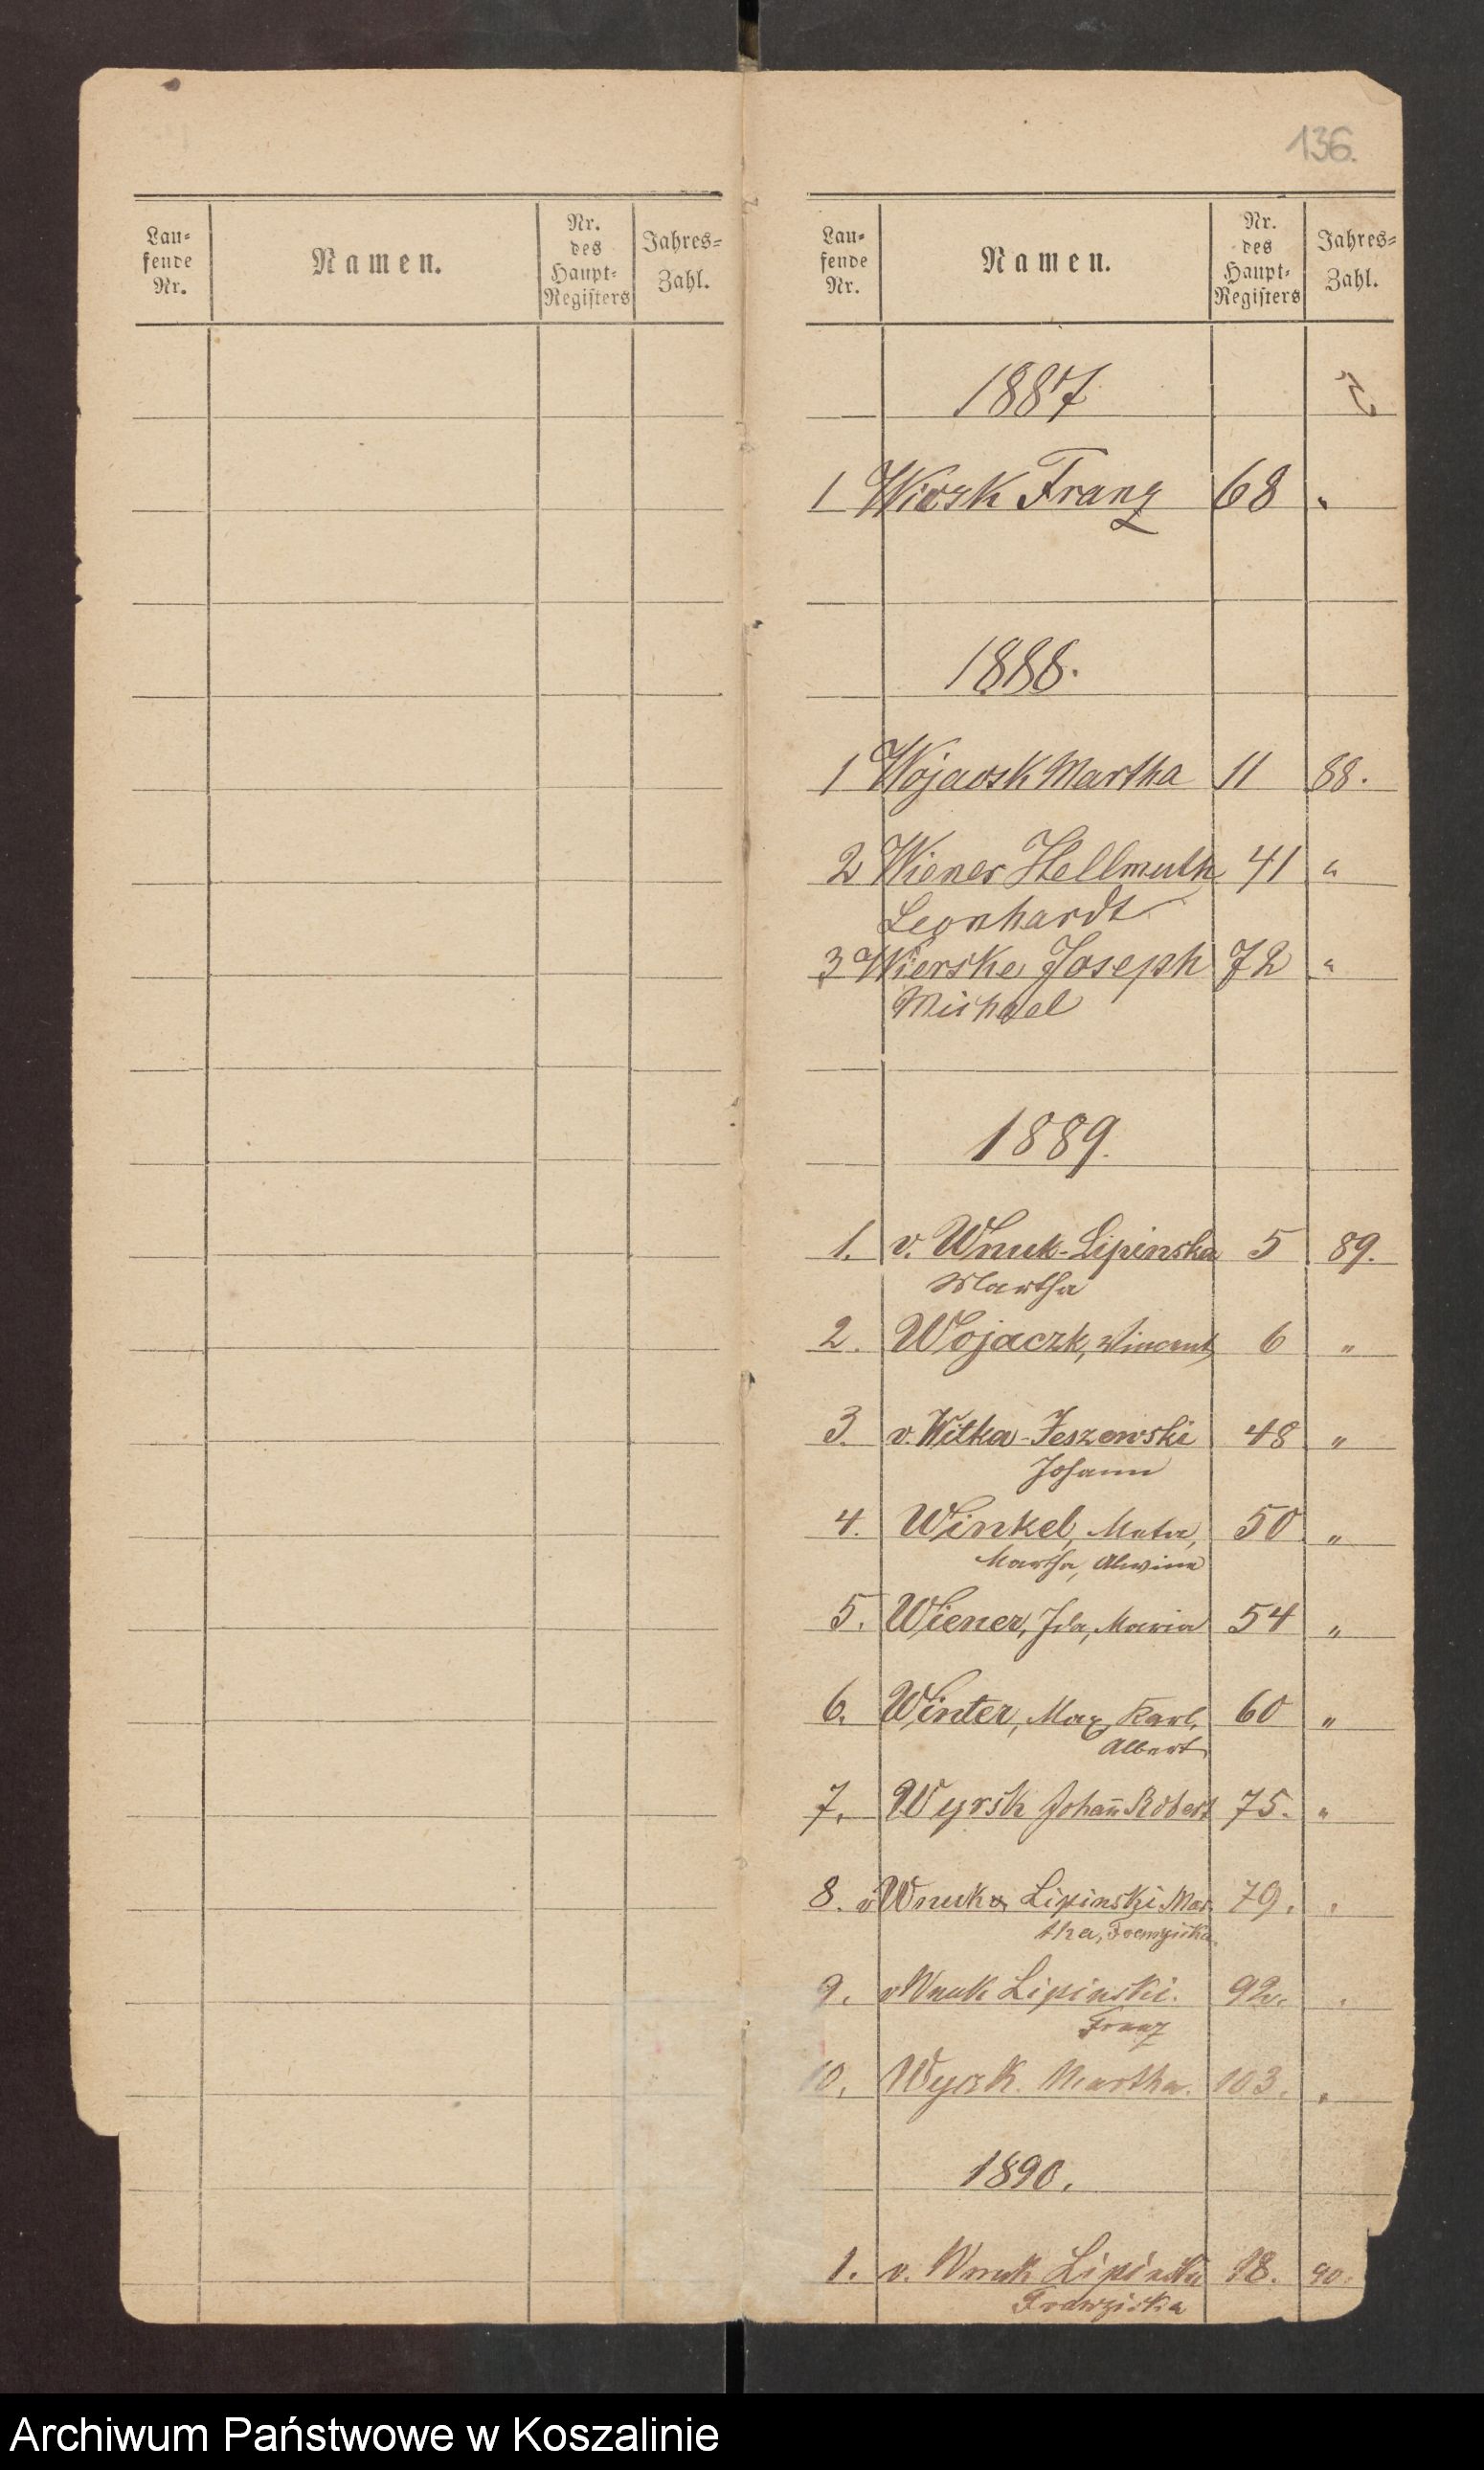 136.
Lau-
fende
Nr.
Namen.
Nr.
des
Haupt-
Registers
Jahres-
Zahl.
Lau-
fende
Nr.
Namen.
Nr.
des
Haupt-
Registers
Jahres-
Zahl.
1887
1 Franz 68 "
1888.
1 Martha 11 88.
2 Wiener Hellmuth 41 "
Leonhardt
3 Wierske Joseph 72 "
Michael
1889.
1. v. Wnuk-Lipinska 5 89.
Martha
2. Wojaczk, Vincent, 6 "
3. v. Witka-Jeszewski 48 "
Johann
4. Winkel, Meta, 50. "
Martha, Alwine
5. Wiener, Ida, Maria 54 "
6. Winter, Max, Karl, 60 "
Albert
7. Wyrsk Johan̄ Robert 75. "
8. v Wnuk Lipinski Mar 79. "
tha, Franziska.
9. v Wnuk Lipinski. 92. "
Franz
10. Martha. 103. "
1890.
1. v. Wnuk Lipinska 18. 90.
Franziska
Archiwum Państwowe w Koszalinie